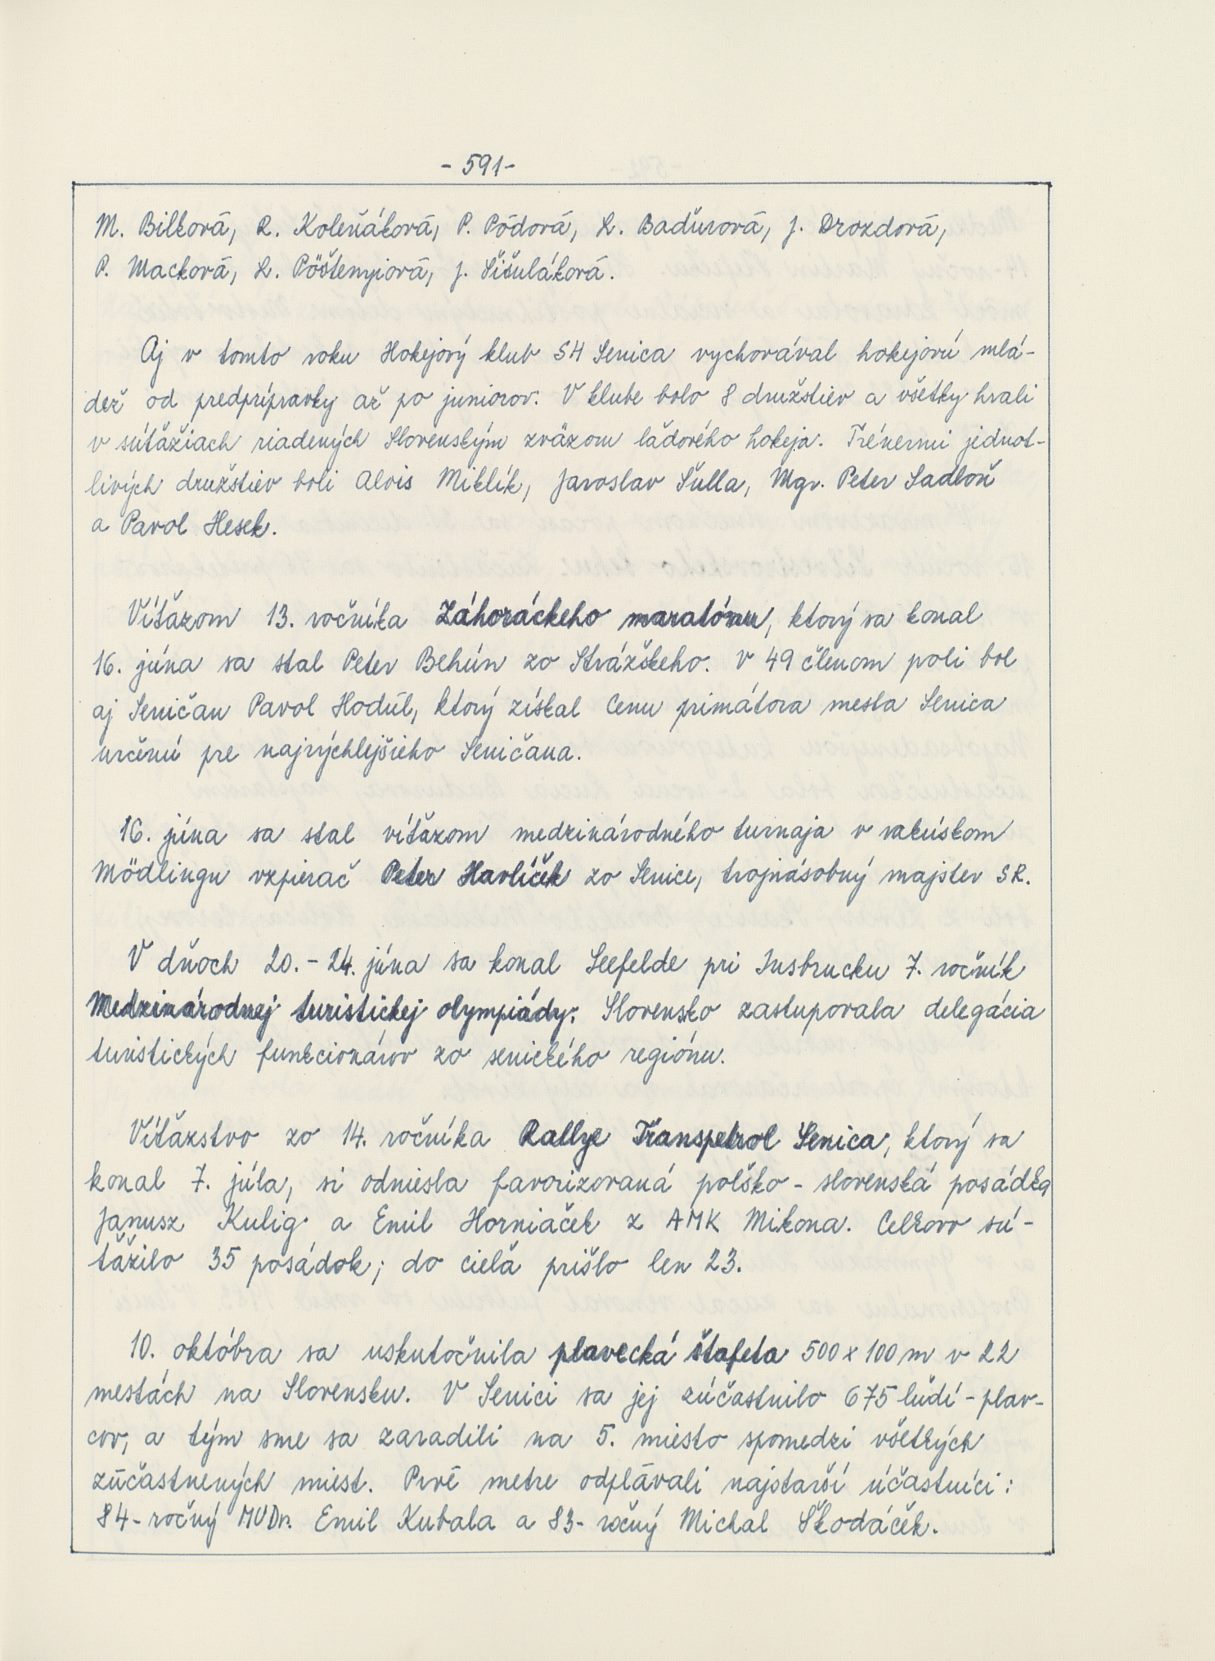 - 591 -
M. Bilková, R. Koleňáková, P. Pódorá, L. Baďurová, J. Drozdová,
P. Macková, L. Pöštenyiová, J. Šišuláková.
Aj v tomto roku Hokejový klub S4 Senica vychovával hokejovú mlá-
dež od predprípravky až po juniorov. V klube bolo 8 družstiev a všetky hrali
v súťažiach riadených Slovenským zväzom ľadového hokeja. Trénermi jednot-
livých družstiev boli Alois Miklík, Jaroslav Šulla, Mgr. Peter Sadloň
a Pavol Hesek.
Víťazom 13. ročníka Záhoráckeho maratónu, ktorý sa konal
16. júna sa stal Peter Behún zo Strážskeho. V 49 člennom poli bol
aj Seničan Pavol Hodúl, ktorý získal Cenu primátora mesta Senica
určenú pre najrýchlejšieho Seničana.
16. júna sa stal víťazom medzinárodného turnaja v rakúskom
Mödlingu vzpierač Peter Havlíček zo Senice, trojnásobný majster SR.
V dňoch 20. - 24. júna sa konal Seefelde pri Insbrucku 7. ročník
Medzinárodnej turistickej olympiády. Slovensko zastupovala delegácia
turistických funkcionárov zo senického regiónu.
Víťazstvo zo 14. ročníka Rallye Transpetrol Senica, ktorý sa
konal 7. júla, si odniesla favorizovaná poľsko - slovenská posádka
Janusz Kulig a Emil Horniaček z AMK Mikona. Celkovo sú-
ťažilo 35 posádok; do cieľa prišlo len 23.
10. októbra sa uskutočnila plavecká štafeta 500 x 100 m v 22
mestách na Slovensku. V Senici sa jej zúčastnilo 675 ľudí - plav-
cov, a tým sme sa zaradili na 5. miesto spomedzi všetkých
zúčastnených miest. Prvé metre odplávali najstarší účastníci:
84-ročný MVDr. Emil Kubala a 83-ročný Michal Škodáček.